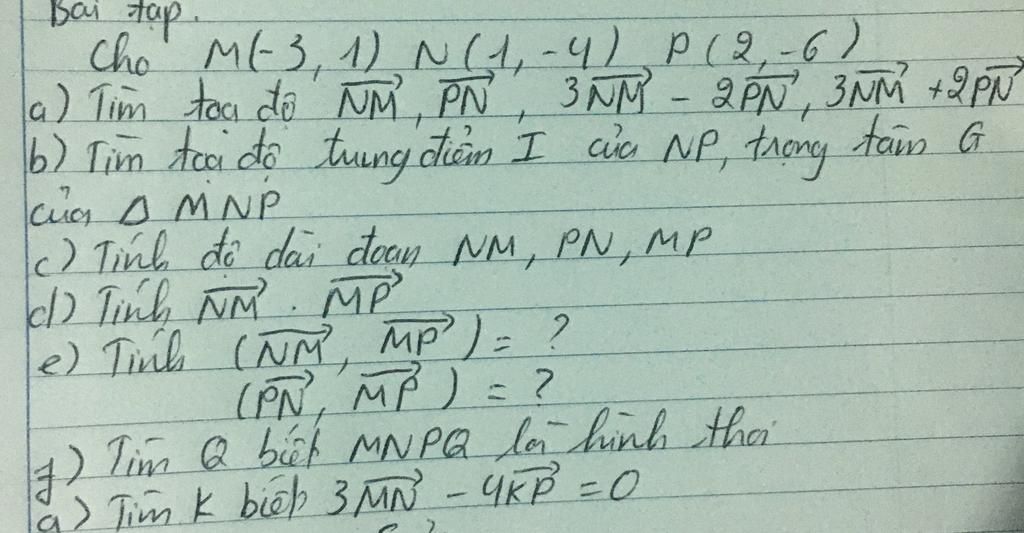 Bài tập.
Cho M(-3, 1) N(1, -4) P(2, -6)
a) Tìm tọa độ $\overrightarrow{NM}$, $\overrightarrow{PN}$, 3$\overrightarrow{NM}$ - 2$\overrightarrow{PN}$, 3$\overrightarrow{NM}$ + 2$\overrightarrow{PN}$
b) Tìm tọa độ trung điểm I của NP, trọng tâm G
của Δ MNP
c) Tính độ dài đoạn NM, PN, MP
d) Tính $\overrightarrow{NM}$ . $\overrightarrow{MP}$
e) Tính ($\overrightarrow{NM}$, $\overrightarrow{MP}$) = ?
($\overrightarrow{PN}$, $\overrightarrow{MP}$) = ?
f) Tìm Q biết MNPQ là hình thoi
g) Tìm K biết 3$\overrightarrow{MN}$ - 4$\overrightarrow{KP}$ = 0